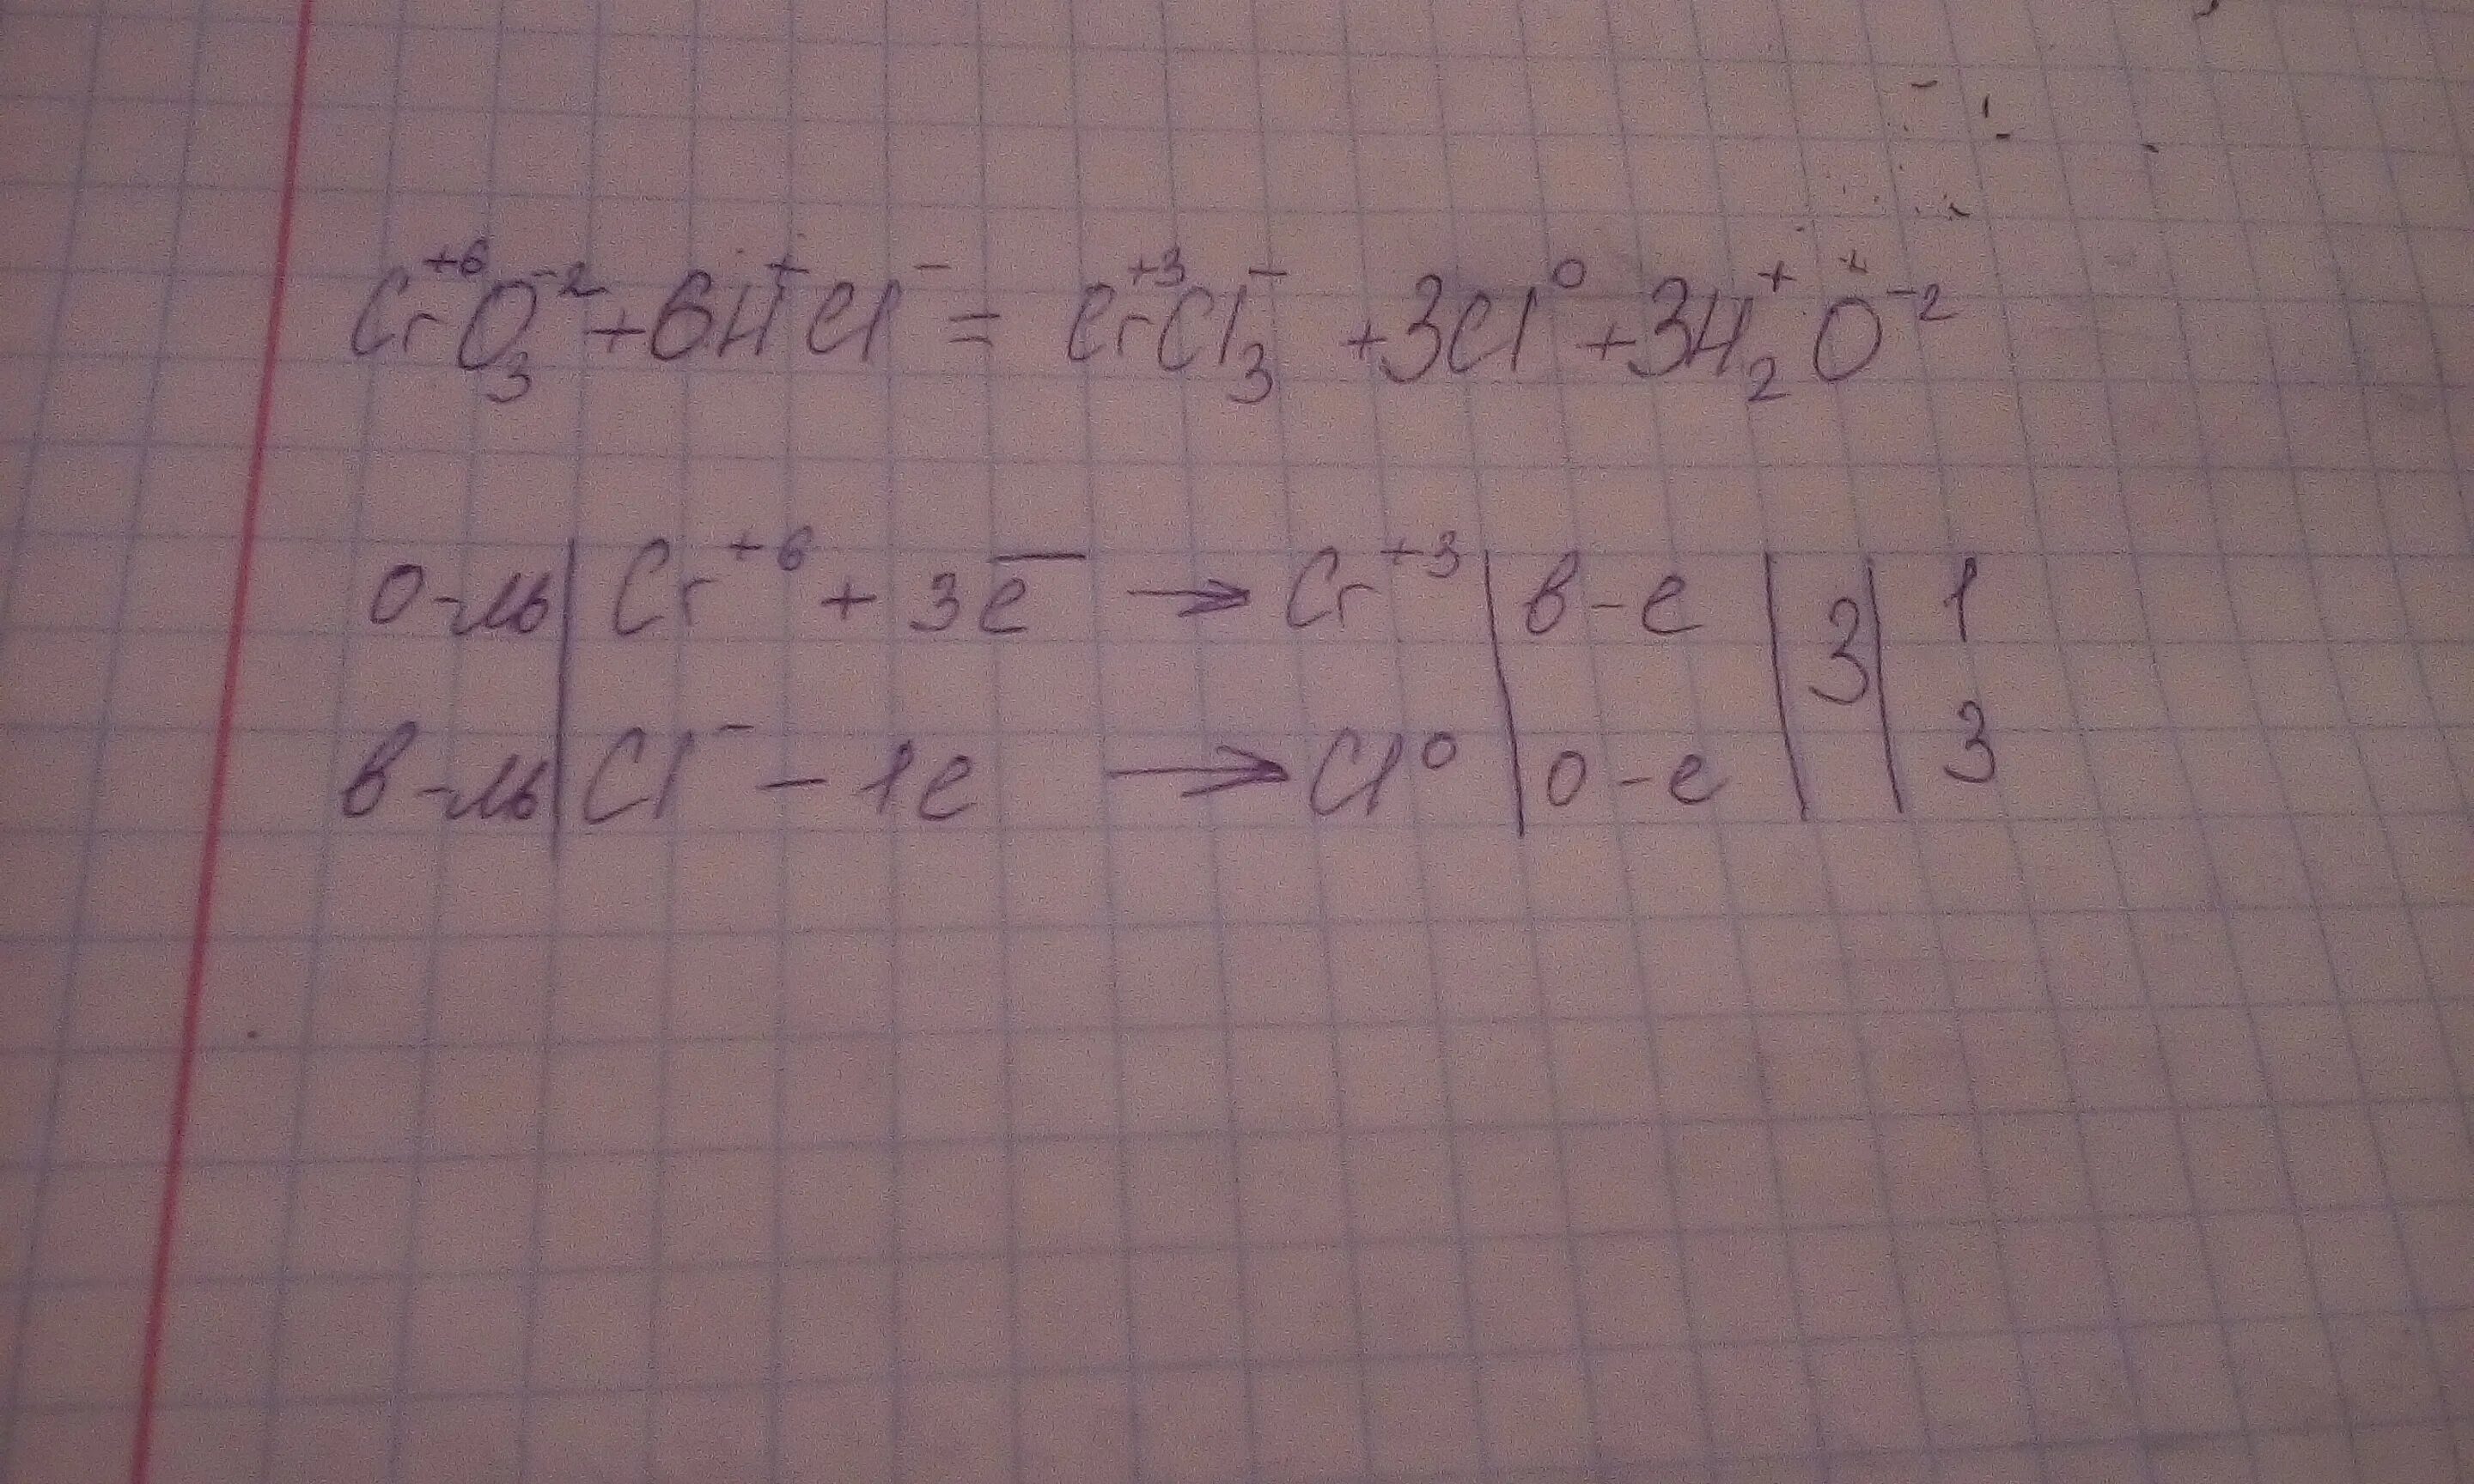 Cr⁺⁶O₃⁻² + 6H⁺Cl⁻ = Cr⁺³Cl₃⁻ + 3Cl⁰ + 3H₂⁺O⁻²
о-ль | Cr⁺⁶ + 3e̅ → Cr⁺³ | в-е | 3 | 1
в-ль | Cl⁻ − 1e → Cl⁰ | о-е | | 3